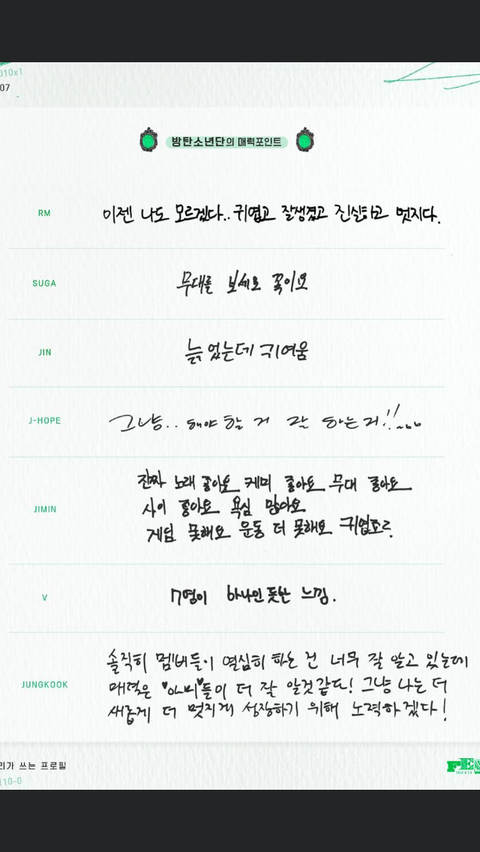 010x1
07
방탄소년단의 매력포인트
RM
이젠 나도 모르겠다.. 귀엽고 잘생겼고 진실하고 멋지다.
SUGA
무대를 보세요 꼭이요
JIN
늙었는데 귀여움
J-HOPE
그냥.. 해야 할 거 잘 하는거!!~...
JIMIN
진짜 노래 좋아요 케미 좋아요 무대 좋아요
사이 좋아요 욕심 많아요
게임 못해요 운동 더 못해요 귀엽죠르.
V
7명이 하나인듯한 느낌.
JUNGKOOK
솔직히 멤버들이 열심히 하는 건 너무 잘 알고 있는데
매력은 "아미"들이 더 잘 알것같다! 그냥 나는 더
새롭게 더 멋지게 성장하기 위해 노력하겠다!
리가 쓰는 프로필
110-0